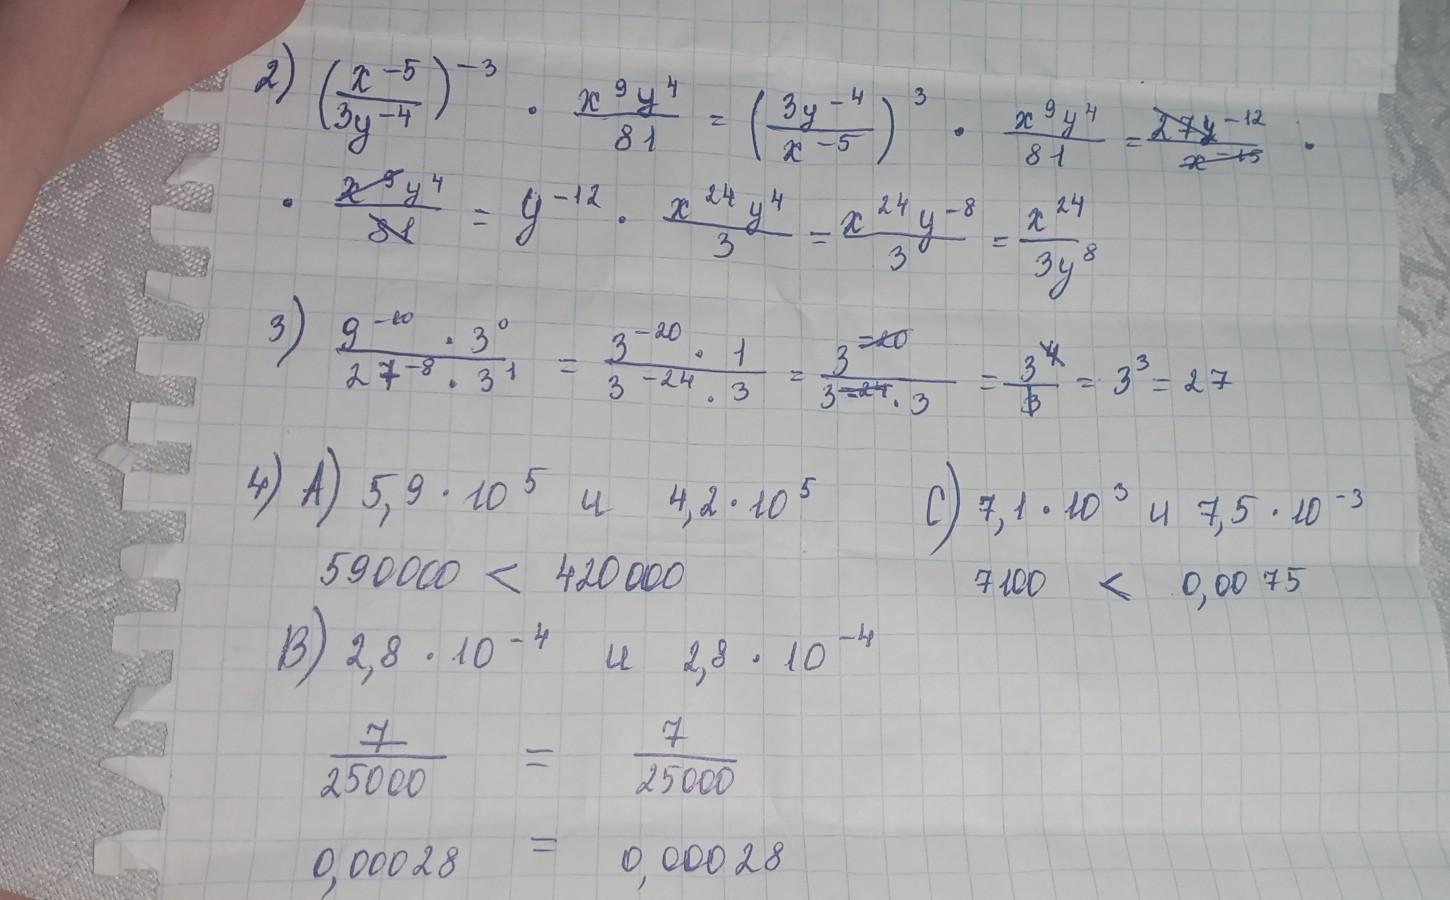 2) (x⁻⁵/3y⁻⁴)⁻³ · x⁹y⁴/81 = (3y⁻⁴/x⁻⁵)³ · x⁹y⁴/81 = 27y⁻¹²/x⁻¹⁵ ·
· x⁹y⁴/81 = y⁻¹² · x²⁴y⁴/3 = x²⁴y⁻⁸/3 = x²⁴/3y⁸
3) 9⁻¹⁰ · 3⁰/27⁻⁸ · 3¹ = 3⁻²⁰ · 1/3⁻²⁴ · 3 = 3⁻²⁰/3⁻²⁴ · 3 = 3⁴/3 = 3³ = 27
4) A) 5,9 · 10⁵ и 4,2 · 10⁵ C) 7,1 · 10³ и 7,5 · 10⁻³
590000 < 420000 7100 < 0,0075
B) 2,8 · 10⁻⁴ и 2,8 · 10⁻⁴
7/25000 = 7/25000
0,00028 = 0,00028